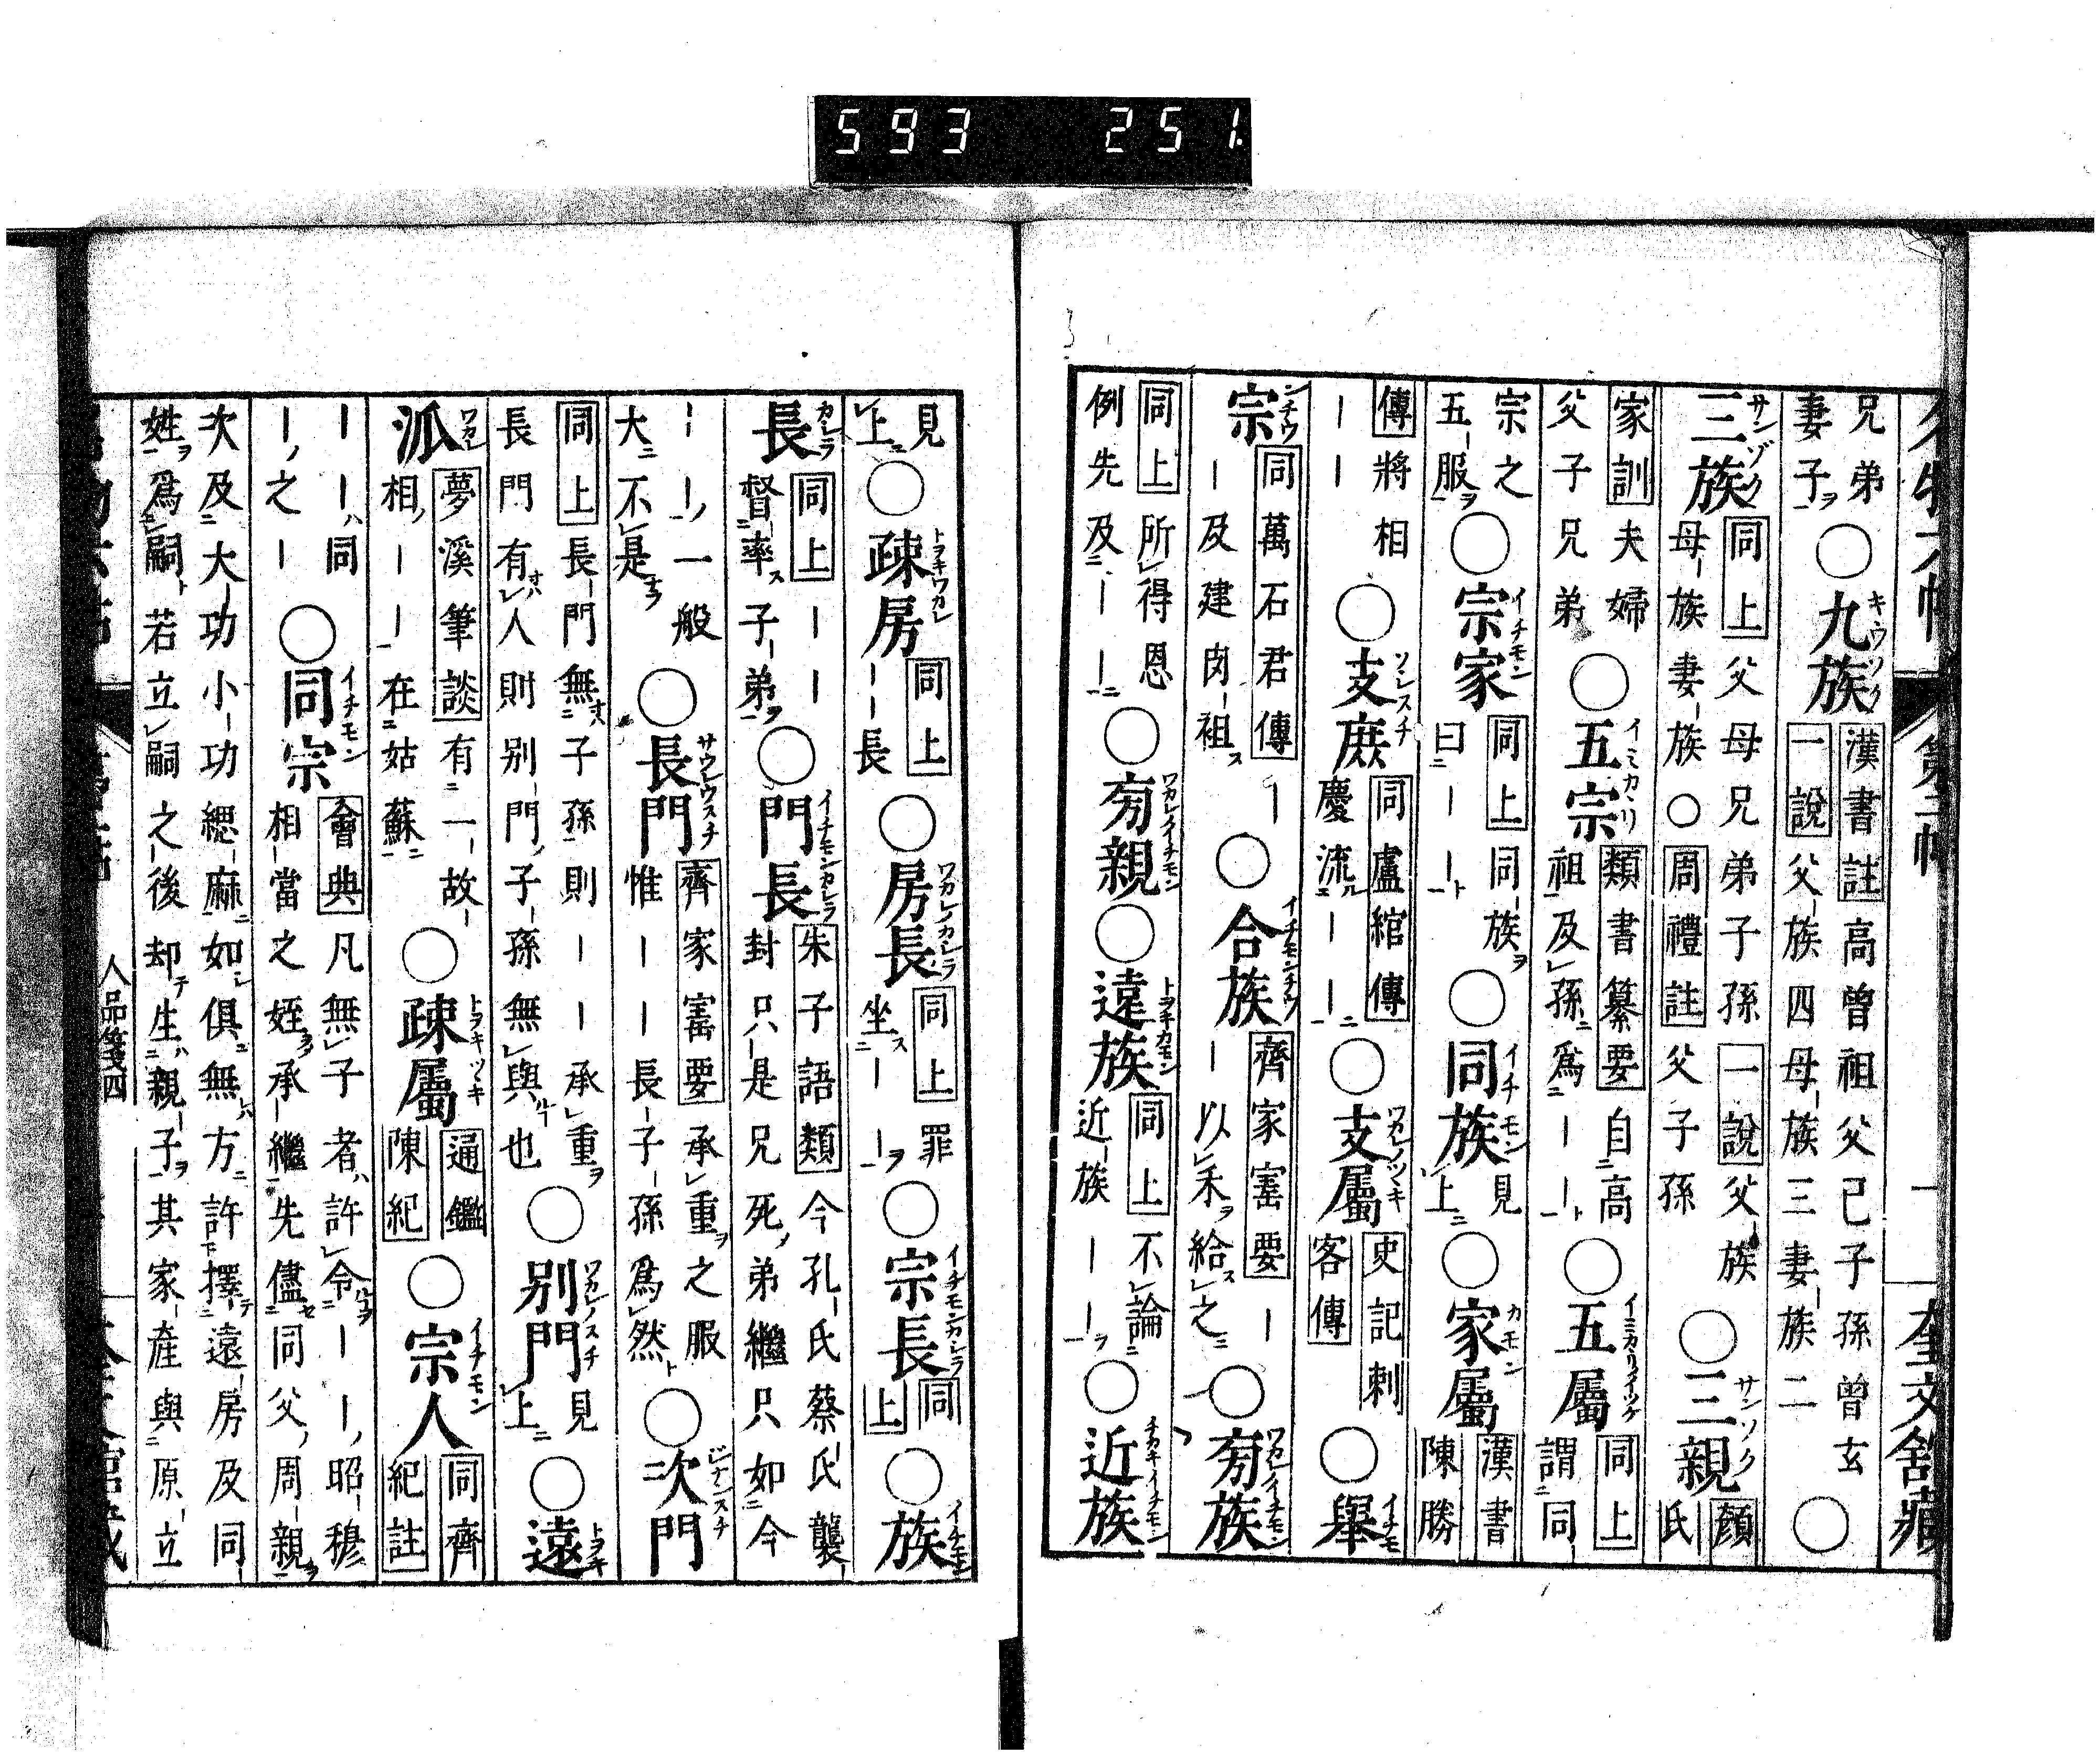 奎文舘藏
兄弟妻子○九族漢書註高曾祖父己子孫曾玄一說父族四母族三妻族二○
三族同上父母兄弟子孫一說父族母族妻族○周禮註父子孫○三親顏氏
家訓夫婦父子兄弟○五宗類書纂要自高祖及孫爲――○五屬同上謂同
宗之五服○宗家同上同族曰――○同族見上○家屬漢書陳勝
傳將相――○支庶同盧綰傳慶流――○支屬史記刺客傳○舉
宗同萬石君傳――及建肉袒○合族齊家寚要――以禾給之○旁族
同上所得恩例先及――○旁親○遠族同上不論近族――○近族
見上○疎房同上――長○房長同上罪坐――○宗長同上○族
長同上――督率子弟○門長朱子語類今孔氏蔡氏襲封只是兄死弟繼只如今
――一般大不是○長門齊家寚要承重之服惟――長子孫爲然○次門
同上長門無子孫則――承重長門有人則別門子孫無與也○別門見上○遠
派夢溪筆談有一故相――在姑蘇○疎屬通鑑陳紀○宗人同齊紀註
―――同―之―○同宗會典凡無子者許令――昭穆相當之姪承繼先儘同父周親
次及大功小功緦麻如俱無方許擇遠房及同姓爲嗣若立嗣之後却生親子其家產與原立
人品箋四
593 251